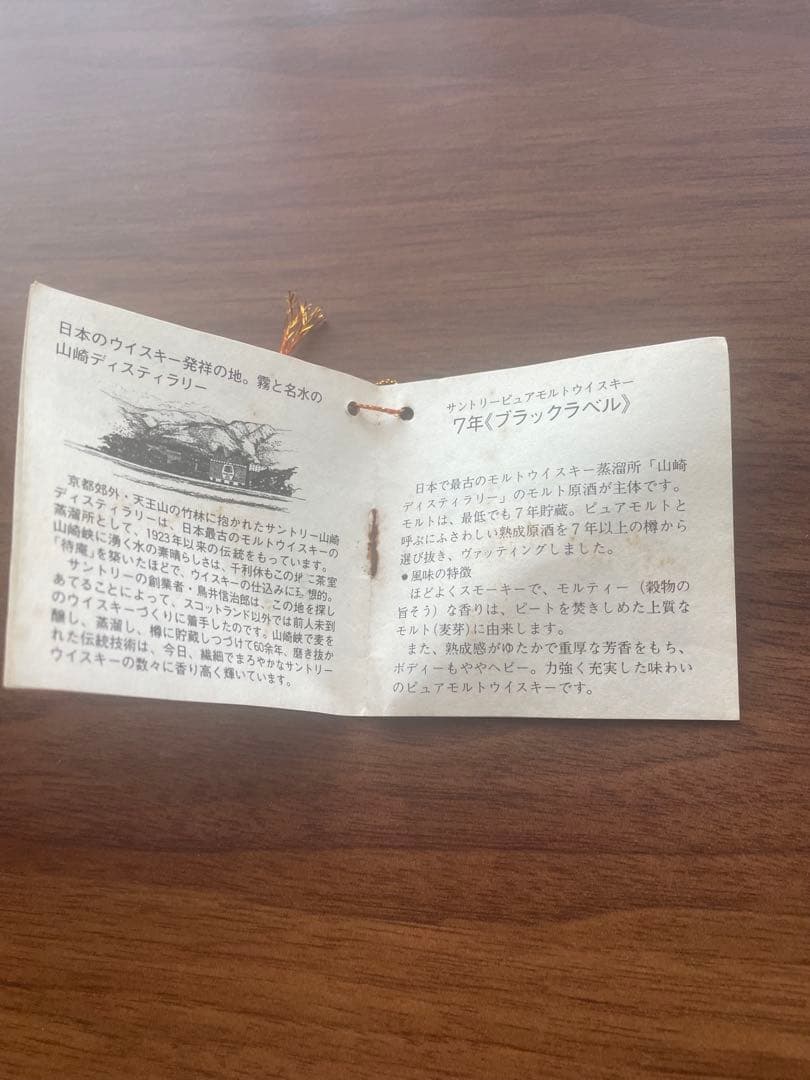 日本のウイスキー発祥の地。霧と名水の
山崎ディスティラリー
京都郊外・天王山の竹林に抱かれたサントリー山崎
ディスティラリーは、日本最古のモルトウイスキーの
蒸溜所として、1923年以来の伝統をもっています。
山崎峡に湧く水の素晴らしさは、千利休もこの地に茶室
「待庵」を築いたほどで、ウイスキーの仕込みに理想的。
サントリーの創業者・鳥井信治郎は、この地を探し
あてることによって、スコットランド以外では前人未到
のウイスキーづくりに着手したのです。山崎峡で麦を
醸し、蒸溜し、樽に貯蔵しつづけて60余年、磨き抜か
れた伝統技術は、今日、繊細でまろやかなサントリー
ウイスキーの数々に香り高く輝いています。
サントリーピュアモルトウイスキー
7年《ブラックラベル》
日本で最古のモルトウイスキー蒸溜所「山崎
ディスティラリー」のモルト原酒が主体です。
モルトは、最低でも7年貯蔵。ピュアモルトと
呼ぶにふさわしい熟成原酒を7年以上の樽から
選び抜き、ヴァッティングしました。
●風味の特徴
ほどよくスモーキーで、モルティー（穀物の
旨そう）な香りは、ピートを焚きしめた上質な
モルト(麦芽)に由来します。
また、熟成感がゆたかで重厚な芳香をもち、
ボディーもややヘビー。力強く充実した味わい
のピュアモルトウイスキーです。